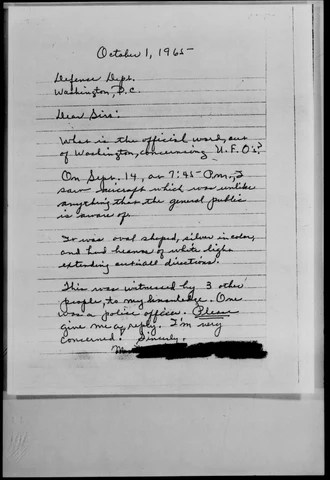 October 1, 1965
Defense Dept.
Washington, D.C.
Dear Sirs:
What is the official word, out
of Washington, concerning U.F.O's?
On Sept. 14, at 7:45 P.m., I
saw aircraft which was unlike
anything that the general public
is aware of.
It was oval shaped, silver in color,
and had beams of white light
extending out in all directions.
This was witnessed by 3 other
people, to my knowledge. One
was a police officer. Please
give me a reply. I'm very
concerned! Sincerely,